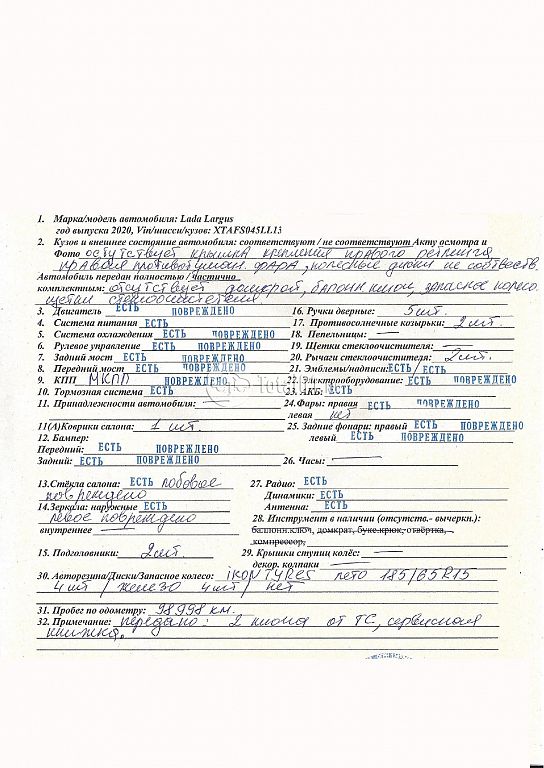 1. Марка/модель автомобиля: Lada Largus
год выпуска 2020, Vin/шасси/кузов: XTAFS045LL13
2. Кузов и внешнее состояние автомобиля: соответствуют / не соответствуют Акту осмотра и
Фото отсутствует крышка крепления правого рейлинга
правая противотуман. фара, колесные диски не соответств.
Автомобиль передан полностью / Частично
комплектным: отсутствует домкрат, баллон ключ, запасное колесо.
щетки стеклоочистителя
3. Двигатель ЕСТЬ ПОВРЕЖДЕНО 16. Ручки дверные: 5 шт.
4. Система питания ЕСТЬ 17. Противосолнечные козырьки: 2 шт.
5. Система охлаждения ЕСТЬ ПОВРЕЖДЕНО 18. Пепельницы: —
6. Рулевое управление ЕСТЬ ПОВРЕЖДЕНО 19. Щетки стеклоочистителя: —
7. Задний мост ЕСТЬ ПОВРЕЖДЕНО 20. Рычаги стеклоочистителя: 2 шт.
8. Передний мост ЕСТЬ ПОВРЕЖДЕНО 21. Эмблемы/надписи: ЕСТЬ / ЕСТЬ
9. КПП МКПП ПОВРЕЖДЕНО 22. Электрооборудование: ЕСТЬ ПОВРЕЖДЕНО
10. Тормозная система ЕСТЬ 23. АКБ: ЕСТЬ
11. Принадлежности автомобиля: — 24. Фары: правая ЕСТЬ ПОВРЕЖДЕНО
левая нет
11(А)Коврики салона: 1 шт. 25. Задние фонари: правый ЕСТЬ ПОВРЕЖДЕНО
12. Бампер: левый ЕСТЬ ПОВРЕЖДЕНО
Передний: ЕСТЬ ПОВРЕЖДЕНО
Задний: ЕСТЬ ПОВРЕЖДЕНО 26. Часы: —
13.Стёкла салона: ЕСТЬ лобовое 27. Радио: ЕСТЬ
повреждено Динамики: ЕСТЬ
14.Зеркала: наружные ЕСТЬ Антенна: ЕСТЬ
левое повреждено 28. Инструмент в наличии (отсутств.- вычеркн.):
внутреннее — баллонн.ключ, домкрат, букс.крюк, отвёртка,
компрессор,
15. Подголовники: 2 шт. 29. Крышки ступиц колёс: —
декор. колпаки —
30. Авторезина/Диски/Запасное колесо: IKON TYRES лето 185/65 R15
4 шт / железо 4 шт / нет
31. Пробег по одометру: 98998 км.
32. Примечание: передано: 2 ключа от ТС, сервисная
книжка.